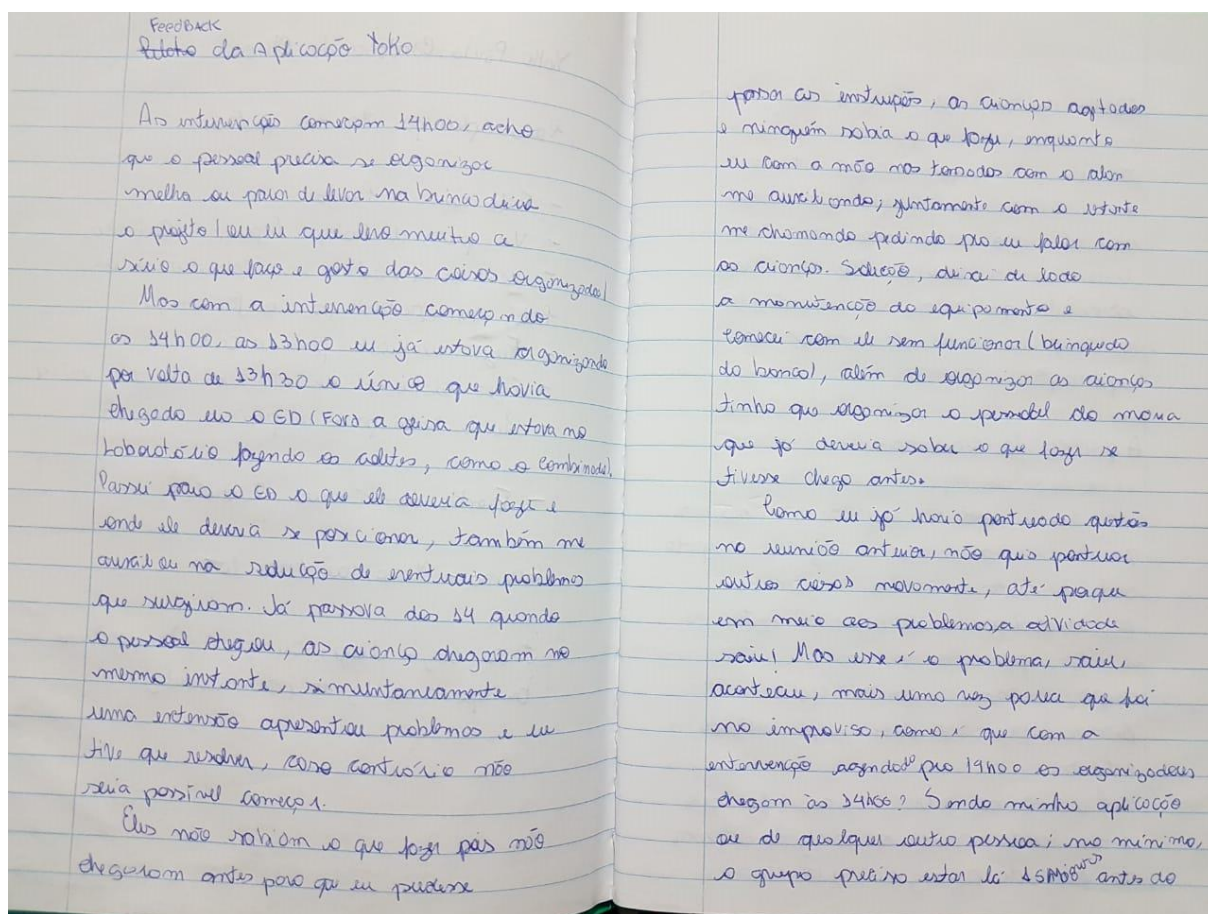 FeedBACK
da Aplicação Yoko
As intervenção começam 14h00, acho
que o pessoal precisa se organizar
melho ou parar de levar na brincadeira
o projeto (ou eu que levo muito a
sério o que faço e gosto das coisas organizadas)
Mas com a intervenção começando
as 14h00, as 13h00 eu já estava organizando
por volta de 13h30 o único que havia
chegado era o ED (Fora a que estava no
fazendo os , como o combinado).
Passei para o ED o que ele deveria fazer e
onde ele deveria se posicionar, também me
auxiliou na redução de eventuais problemas
que surgiram. Já passava das 14 quando
o pessoal chegou, as criança chegaram no
mesmo instante, simuntaneamente
uma extensão apresentou problemas e eu
tive que resolver, caso contrário não
seria possível começar.
Eles não sabiam o que fazer pois não
chegaram antes para que eu pudesse
passar as instrução, as crianças agitadas
e ninguém sabia o que fazer, enquanto
eu com a mão nas tomadas com o alan
me auxiliando, juntamente com o
me chamando pedindo pro eu falar com
as crianças. Solução, deixei de lado
a manutenção do equipamento e
comecei com ele sem funcionar (brinquedo
do banco), além de organizar as crianças
tinha que organizar o pessoal do
que já deveria saber o que fazer se
tivesse chego antes.
Como eu já havia pontuado
na reunião anterior, não quis pontuar
outras novamente, até porque
em meio aos problemas, a atividade
saiu! Mas esse é o problema, saiu,
aconteceu, mais uma vez que foi
no improviso, como é que com a
entervenção agendado pro 14h00 os
chegam às 14h00? Sendo minha aplicação
ou de qualquer outra pessoa; no mínimo,
o grupo precisa estar lá antes do